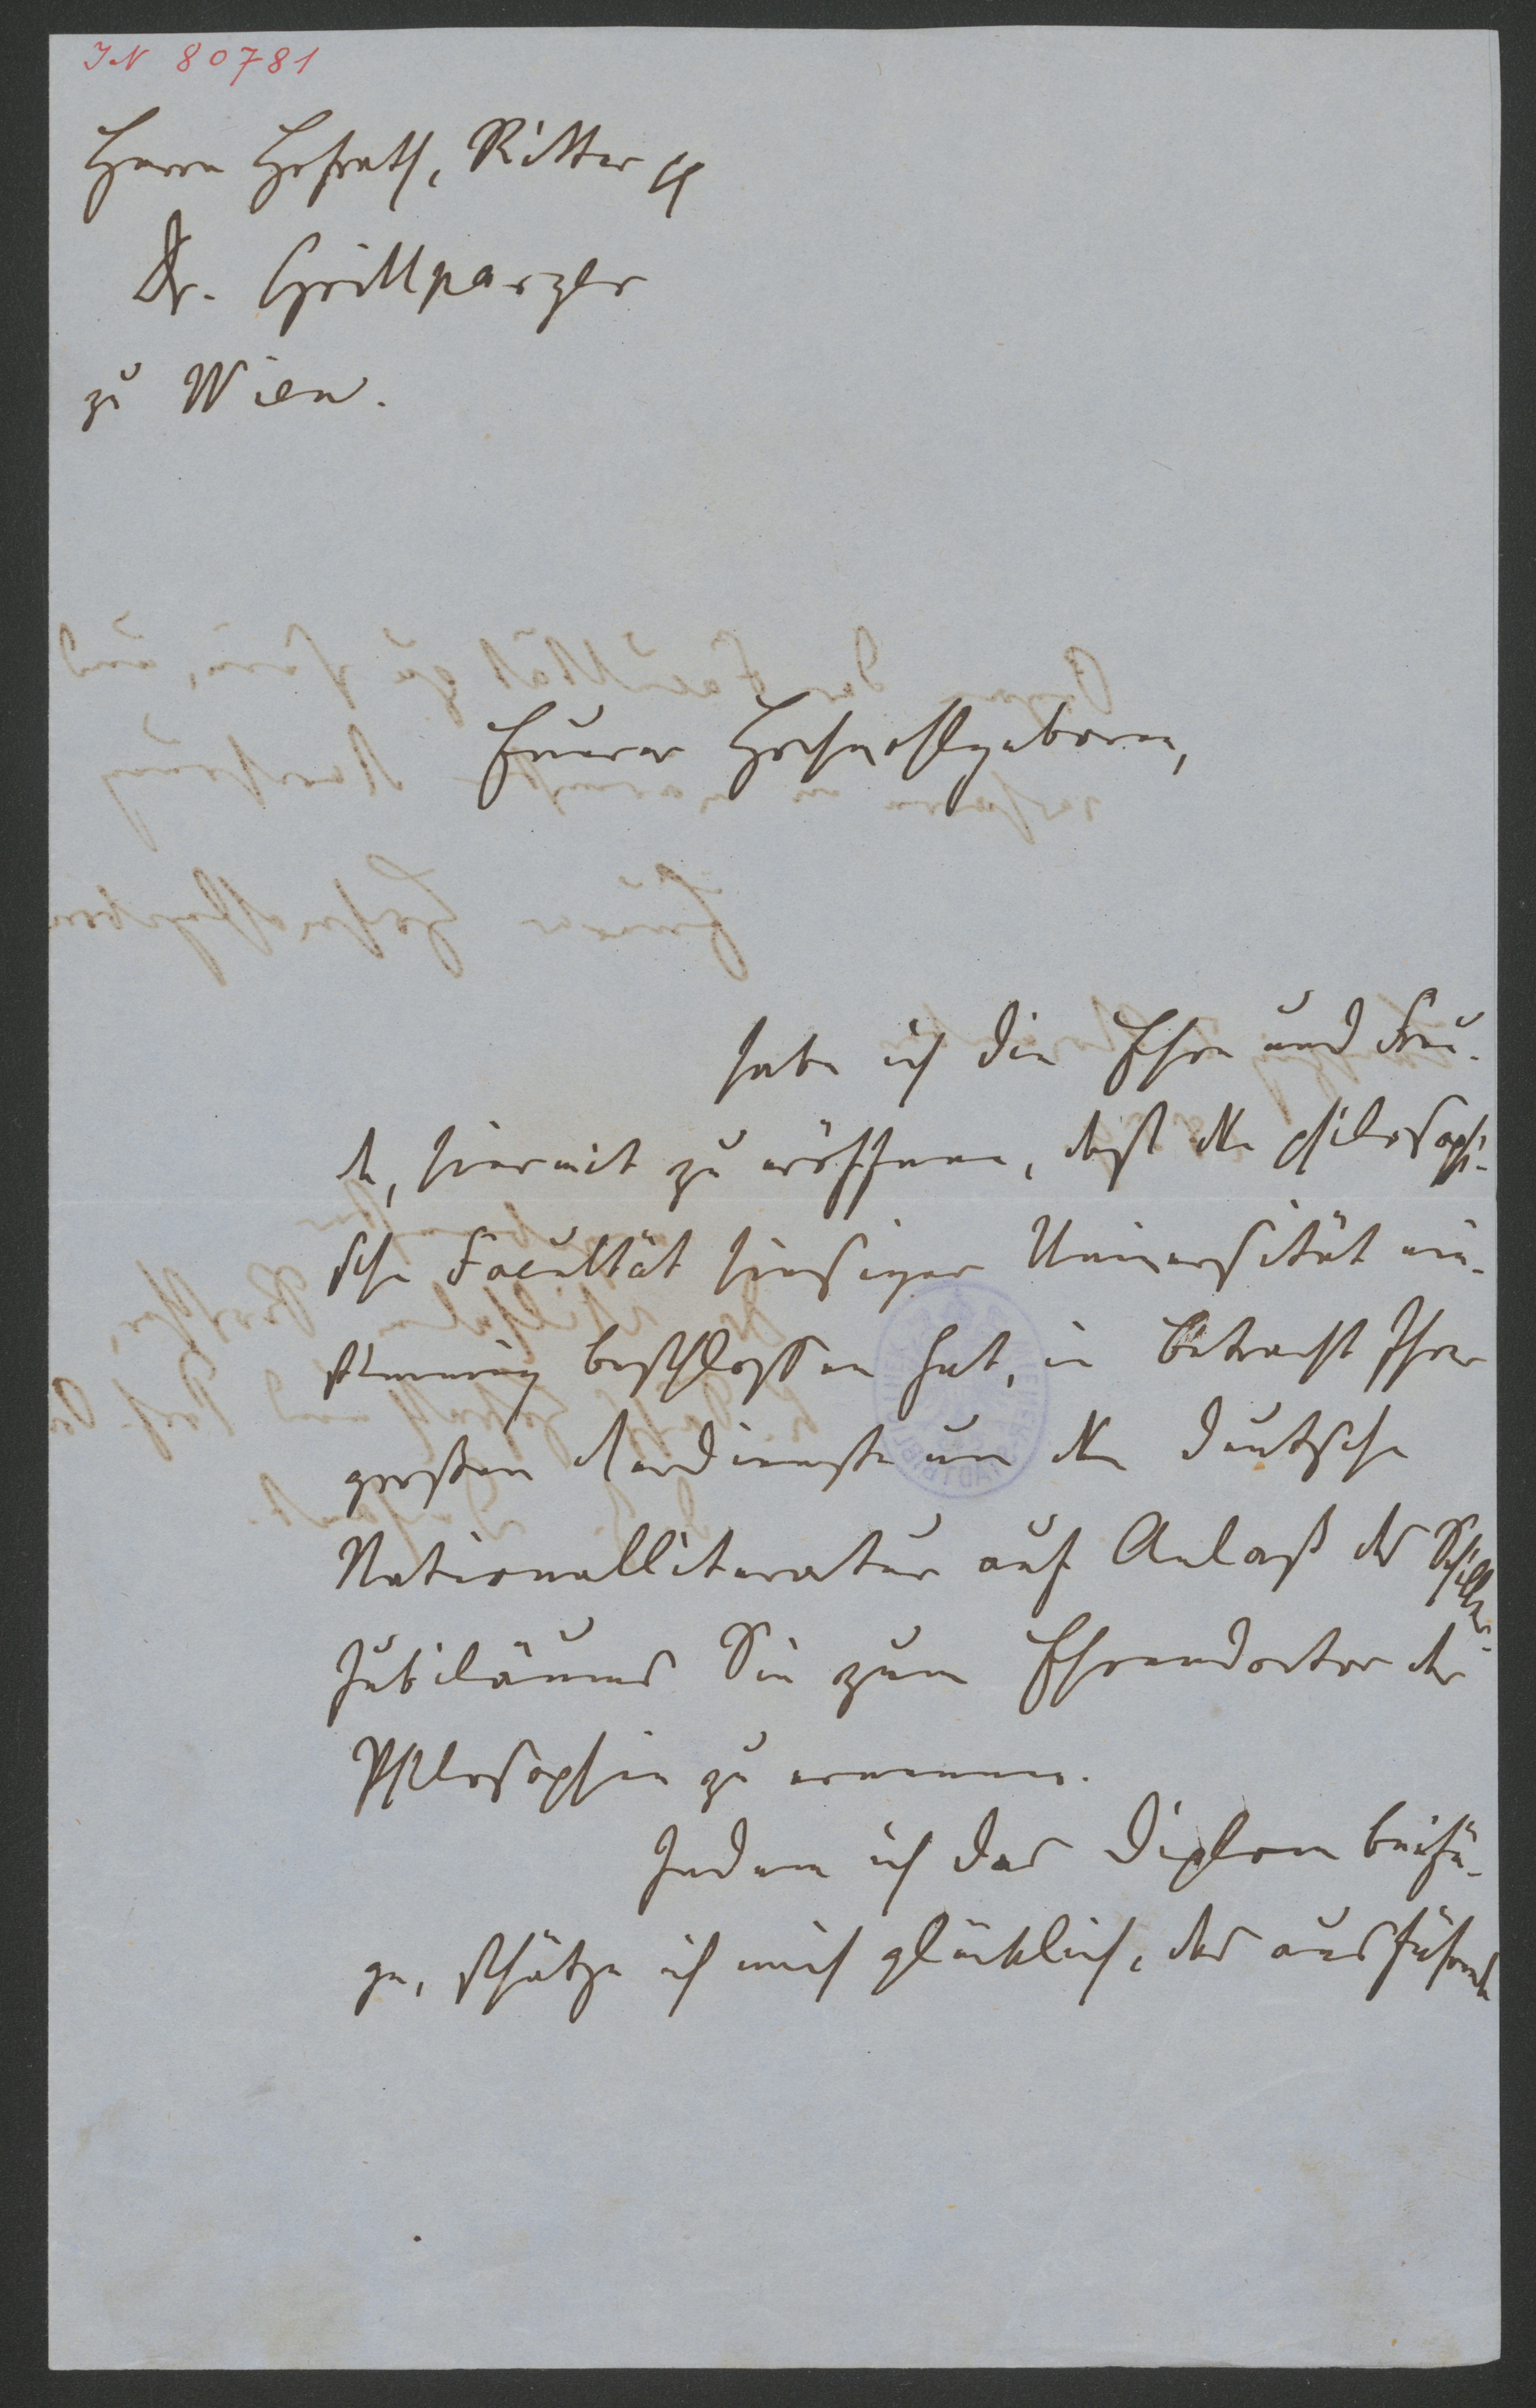 IN 80781
Herrn Hofrath, Ritter pp
Dr. Grillparzer
zu Wien.
Euerer Hochwohlgeboren,
habe ich die Ehre und Freu-
de, hiermit zu eröffnen, daß die philosophi-
sche Facultät hiesiger Universität ein-
stimmig beschlossen hat, in Betracht Ihrer
großen Verdienste um die deutsche
Nationalliteratur auf Anlaß des Schiller-
Jubiläums Sie zum Ehrendoctor der
Philosophie zu ernennen.
Indem ich das Diplom beifü-
ge, schätze ich mich glücklich, das ausführende